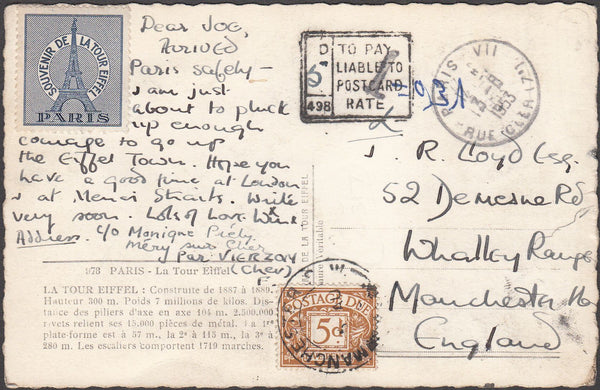 SOUVENIR DE LA TOUR EIFFEL
PARIS
Dear Joe,
Arrived
Paris safely –
I am just
about to pluck
up enough
courage to go up
the Eiffel Town. Hope you
have a good time at London
& at Menai Straits. Write
very soon. Lots of Love
Address. c/o Monique
Mery sur Cher
par VIERZON
(Cher)
978 PARIS - La Tour Eiffel
LA TOUR EIFFEL : Construite de 1887 à 1889.
Hauteur 300 m. Poids 7 millions de kilos. Dis-
tance des piliers d'axe en axe 104 m. 2.500.000
rivets relient ses 15.000 pièces de métal. La 1re
plate-forme est à 57 m., la 2e à 115 m., la 3e à
280 m. Les escaliers comportent 1719 marches.
DE LA TOUR EIFFEL
véritable
D
TO PAY
LIABLE TO
POSTCARD
RATE
498
PARIS VII
RUE CLER
1953
J. R. Lloyd Esq.
52 Demesne Rd
Whalley Range
Manchester
England
POSTAGE DUE
5d
MANCHESTER